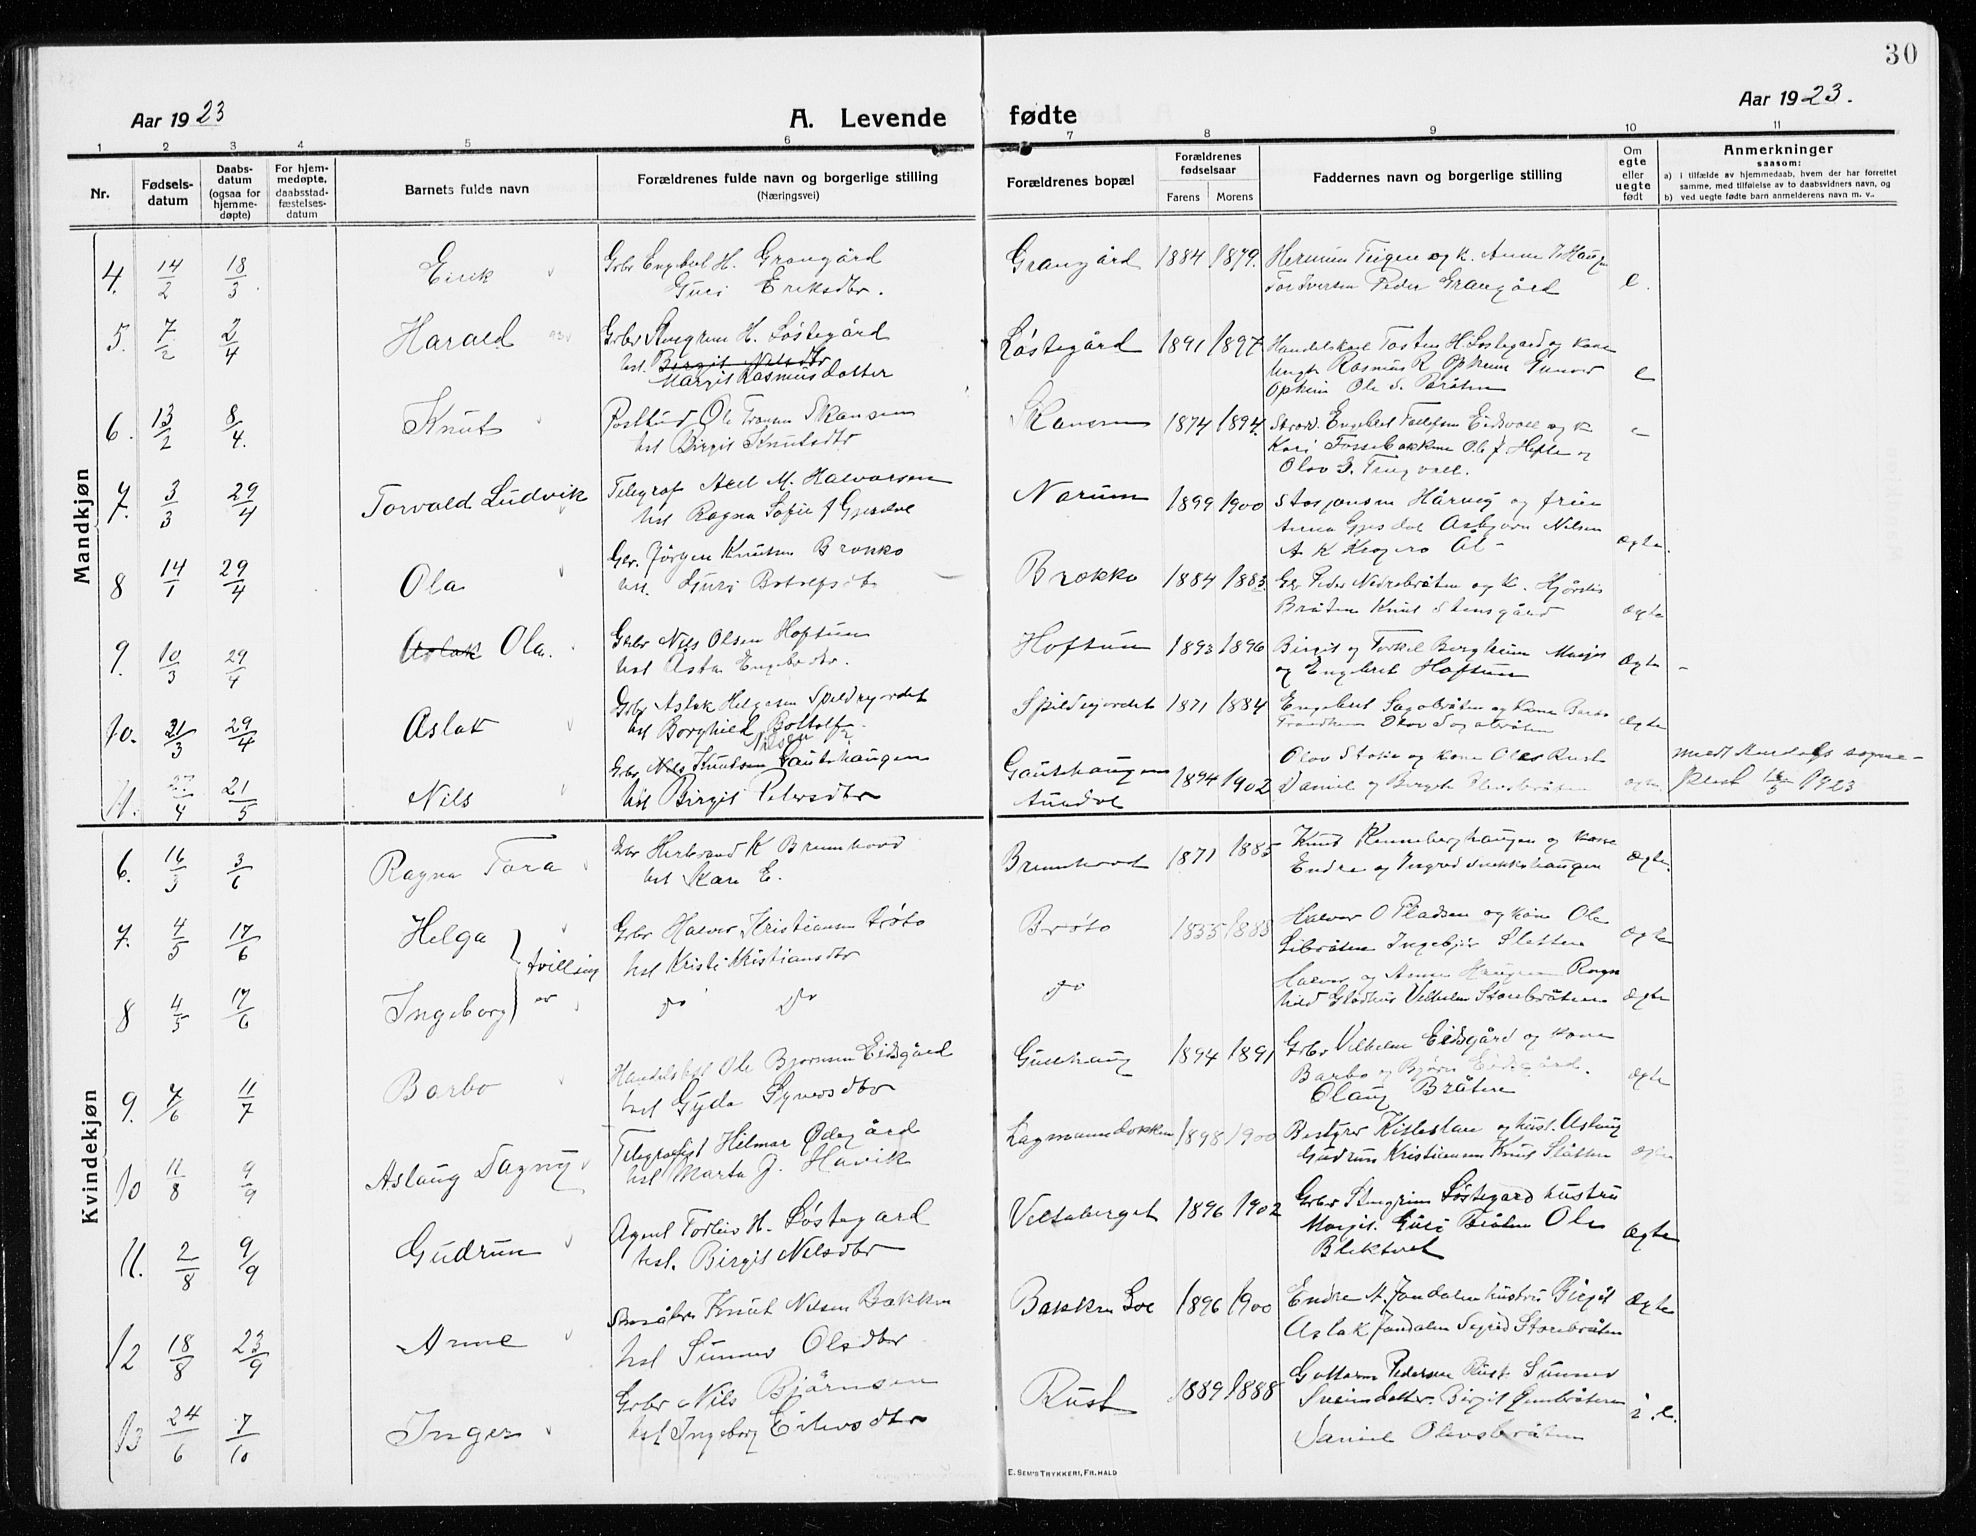 30
Aar 1923
A. Levende fødte
Aar 1923.
1 2 3 4 5 6 7 8 9 10 11
Nr.
Fødsels-
datum
Daabs-
datum
(ogsaa for
hjemme-
døpte)
For hjem-
medøpte,
daabsstad-
fæstelses-
datum
Barnets fulde navn
Forældrenes fulde navn og borgerlige stilling
(Næringsvei)
Forældrenes bopæl
Forældrenes
fødselsaar
Farens Morens
Faddernes navn og borgerlige stilling
Om
egte
eller
uegte
født
Anmerkninger
saasom:
a) i tilfælde av hjemmedaab, hvem der har forrettet
samme, med tilføielse av to daabsvidners navn, og
b) ved uegte fødte barn anmelderens navn m. v..
Mandkjøn
4. 14/2 18/3 Eirik
Grbr Engebret H. Grangård
Guri Eriksdtr.
Grangård 1884 1879.
Herman Teigen og k. Anne T Hauge
Tor Iversen Peder Grangård
e.
5. 7/2 2/4 Harald
Grbr Stengrim H. Løstegård
hst. Birgit Nilsdtr
Margit Rasmusdatter
Løstegård 1891 1897
Handelskar Tosten H. Løstegard og kone
Margit Rasmus R Opheim Gunvor
Opheim Ole S. Bråten
e
6. 13/2 8/4. Knut
Ole Tronsen Skansen
hst Birgit Knutsdtr
Skansen 1874 1894.
Engebret Tollefsen Eidsvoll og k
Kari Fossebakken Ole J Hefte og
Olav J. Trugvoll.
e
7. 3/3 29/4 Torvald Ludvik
Telegraf Axel M. Halvorsen
hst Ragna Sofie f Gjesdal
Norum 1899 1900
Hårvig og fru
Anna Gjesdal Asbjørn Nilsen
A K Krogero Ål -
ægte.
8 14/1 29/4 Ola
Gbr. Jørgen Knutsen Brækko
hst. Guri Botolfsdtr
Brækko 1884 1883.
Gbr Peder Nedrebråten og k. Hjørdis
Bråten Knut Stensgård
ægte
9. 10/3 29/4 Aslak Ola.
Grbr Nils Olsen Hoftun
hst Asta Engebrdtr.
Hoftun 1893 1896
Birgit og Torkel Bergheim Margit
og Engebret Hoftun
ægte -
10. 21/3 29/4 Aslak
Grbr Aslak Helgesen Spildrejordet
hst Borghild Bottolfs
Spildrejordet 1871 1884
Engebret Sagabråten og kone Barbo
Trondhem Olav Sagabråten
ægte
11. 27/4 21/5 Nils
Nilsen
Grbr Nils Knutsen Gautehaugen
hst Birgit Pedersdtr
Gautehaugen
Aurdal
1894 1902
Olav Stake og kone Oles Rust
Daniel og Bergit Olevsbråten
ægte
medt Aurdals sogne-
prest 16/5 1923
Kvindekjøn
6. 16/3 3/6 Ragna Tora
Gbr Herbrand K Brennhovd
hst Kari E.
Brennhovd 1871 1885
Knud Renneberghaugen og kone
Endre og Ingrid Svekkshaugen
ægte.
7. 4/5 17/6 Helga
tvilling
er
Grbr Halvor Kristiansen Brøto
hst Kristi Kristiansdtr
Brøto 1885 1888
Halvor O Pladsen og kone Ole
Libråten Ingebjør Sletten
ægte
8 4/5 17/6 Ingeborg
do do
do
Halvor og Anne Haugen Ragn
hild Gladhus Vilhelm Storebråten
ægte
9. 7/6 11/7 Barbo
Handelsbest Ole Bjørnsen Eidsgård
hst Gyda Syversdtr
Gullhaug 1894 1891
Grbr Vilhelm Eidsgård og kone
Barbo og Bjørn Eidsgård.
Olaug Bråten
ægte
10 11/8 9/9 Aslaug Dagny
Telegrafist Hilmar Ødegård
hst Marta J. Havik
Lagmannsdokken 1898 1900
Bestyrer Killeslare og hust. Aslaug
Gudrun Kristiansen Knut Slåtten
ægte
11. 2/8 9/9 Gudrun
Agent Torleiv H. Løstegard
hst. Birgit Nilsdtr
Veltaberget 1896 1902
Grbr Stengrim Løstegard hustru
Margit. Guri Bråten Ole
Bliktvet
ægte
12 18/8 23/9 Anne
Knut Nilsen Bakken
hst Sunnev Olsdtr
Bakken Loe 1896 1900
Endre A. Jondalen hustru Birgit
Aslak Jondalen Sigrid Storebråten
ægte
13 24/6 7/10 Inger
Grbr Nils Bjørnsen
hst Ingeborg Eilevsdtr
Rust 1889 1888
Guttorm Pedersen Rust. Sunnev
Sveinsdatter. Birgit Grønbråten
Daniel Olevsbråten
e.
E. SEM'S TRYKKERI, FR. HALD